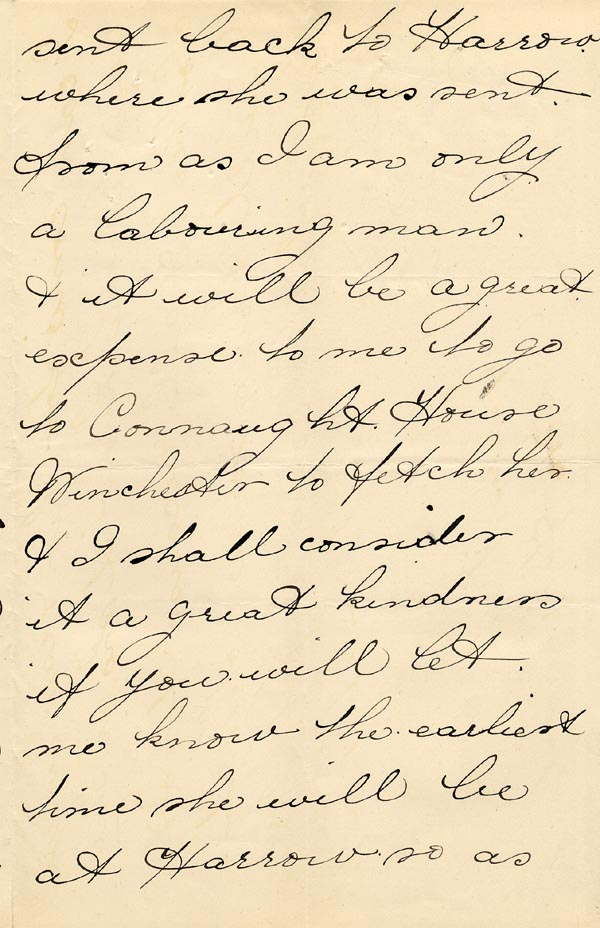 sent back to Harrow.
where she was sent.
from as I am only
a labouring man.
& it will be a great
expense. to me to go
to Connaught. House
Winchester to fetch her.
& I shall consider
it a great kindness
if you will let.
me know the earliest
time she will be
at Harrow so as